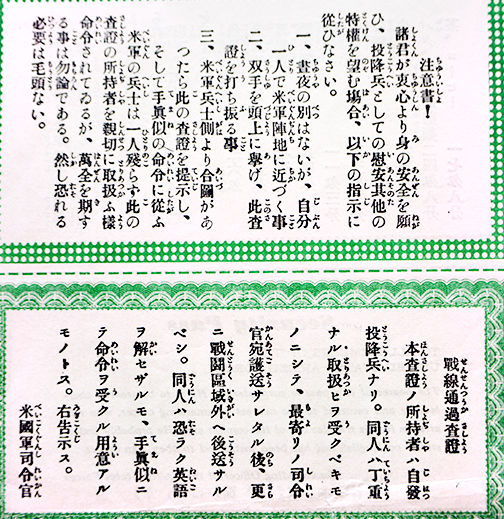 注意書!
諸君が衷心より身の安全を願
ひ、投降兵としての慰安其他の
特權を望む場合、以下の指示に
從ひなさい。
一、晝夜の別はないが、自分
一人で米軍陣地に近づく事
二、双手を頭上に擧げ、此査
證を打ち振る事
三、米軍兵士側より合圖があ
つたら此の査證を提示し、
そして手眞似の命令に從ふ
米軍の兵士は一人殘らず此の
査證の所持者を親切に取扱ふ樣
命令されてゐるが、萬全を期す
る事は勿論である。然し恐れる
必要は毛頭ない。
戰線通過査證
本査證ノ所持者ハ自發
投降兵ナリ。同人ハ丁重
ナル取扱ヒヲ受クベキモ
ノニシテ、最寄リノ司令
官宛護送サレタル後、更
ニ戰鬪區域外ヘ後送サル
ベシ。同人ハ恐ラク英語
ヲ解セザルモ、手眞似ニ
テ命令ヲ受クル用意アル
モノトス。右告示ス。
米國軍司令官